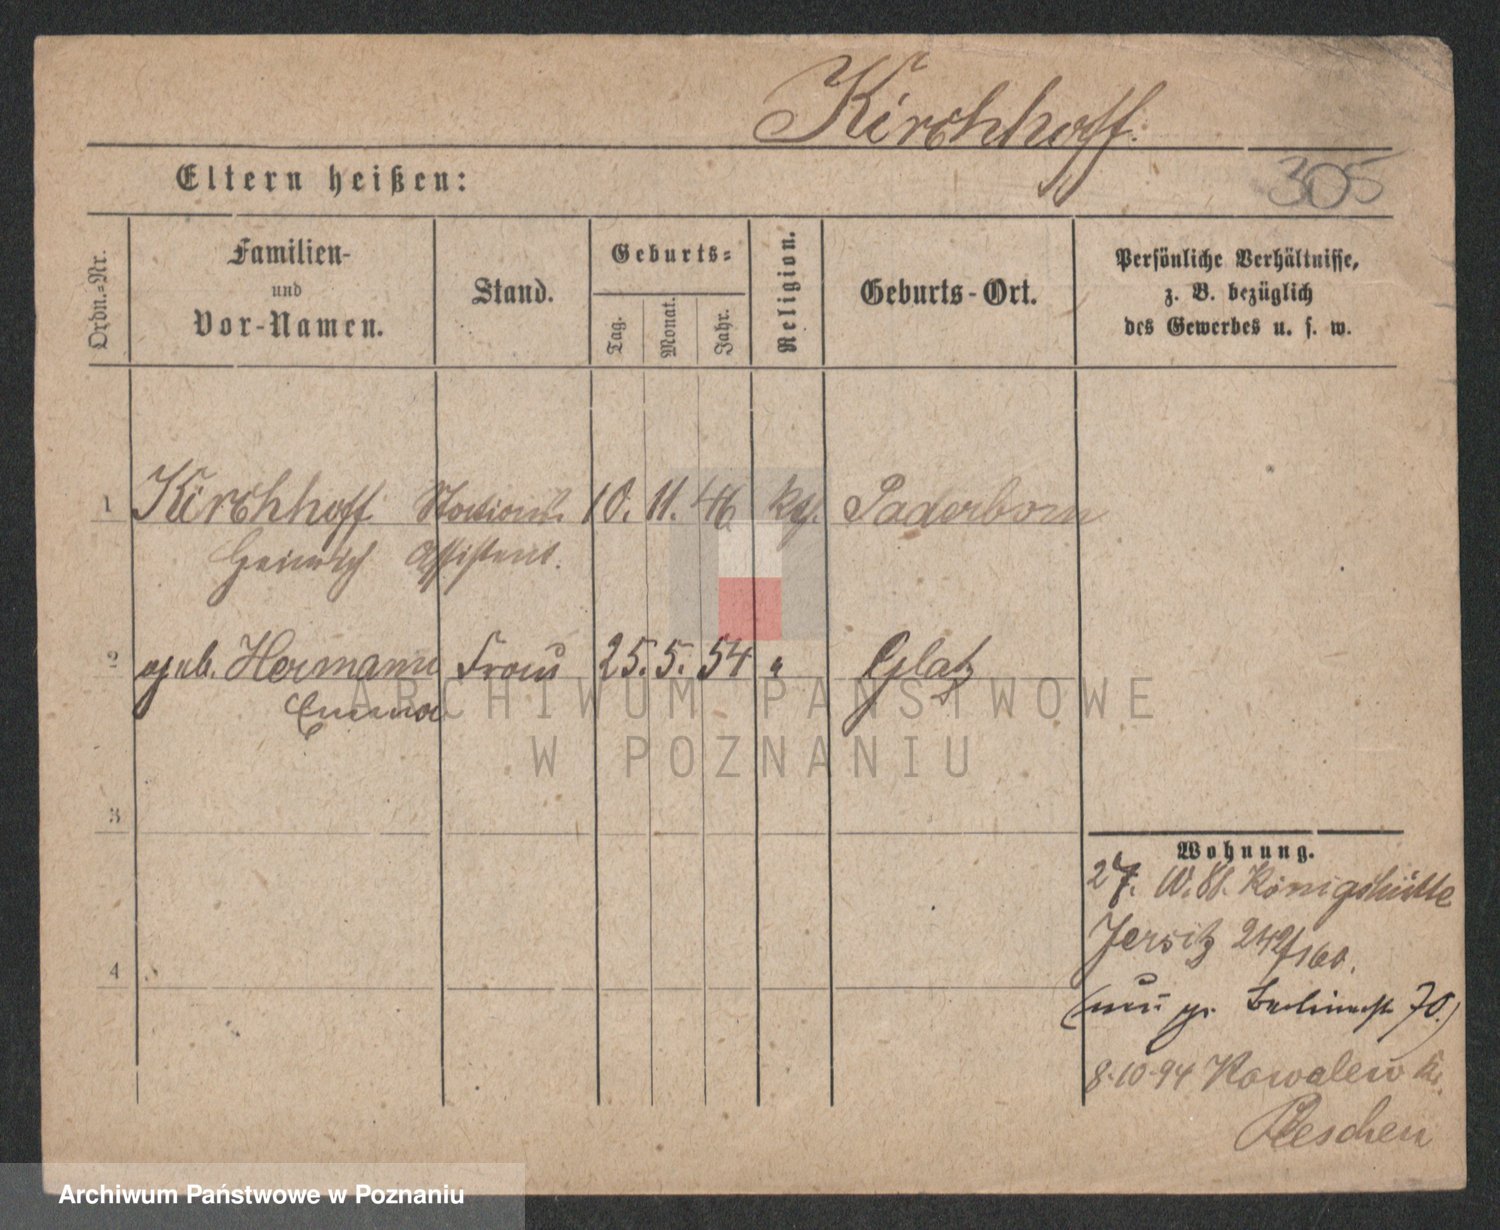 Kirchhoff.
305
Eltern heißen:
Ordn.-Nr.
Familien-
und
Vor-Namen.
Stand.
Geburts-
Tag.
Monat.
Jahr.
Religion.
Geburts-Ort.
Persönliche Verhältnisse,
z. B. bezüglich
des Gewerbes u. s. w.
1 Kirchhoff Stations 10. 11. 46 kth. Paderborn
Heinrich Assistent.
2 geb. Hermann Frau 25. 5. 54 " Glatz
Emma
ARCHIWUM PAŃSTWOWE
W POZNANIU
3
Wohnung.
27. Königshütte
Jersitz 242/160.
4
(nun gr. Berlinerst 70.)
8.10.94 Kowalew Kr.
Pleschen
Archiwum Państwowe w Poznaniu